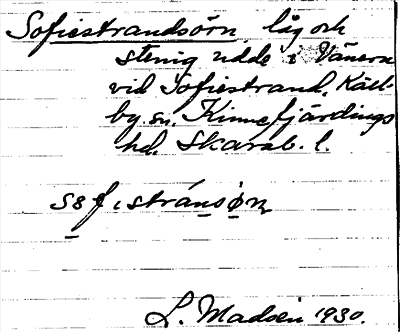 Sofiestrandsörn låg och
stenig udde i Vänern
vid Sofiestrand, Käll-
by sn, Kinnefjärdings
hd, Skarab. l.
L. Madsén 1930.